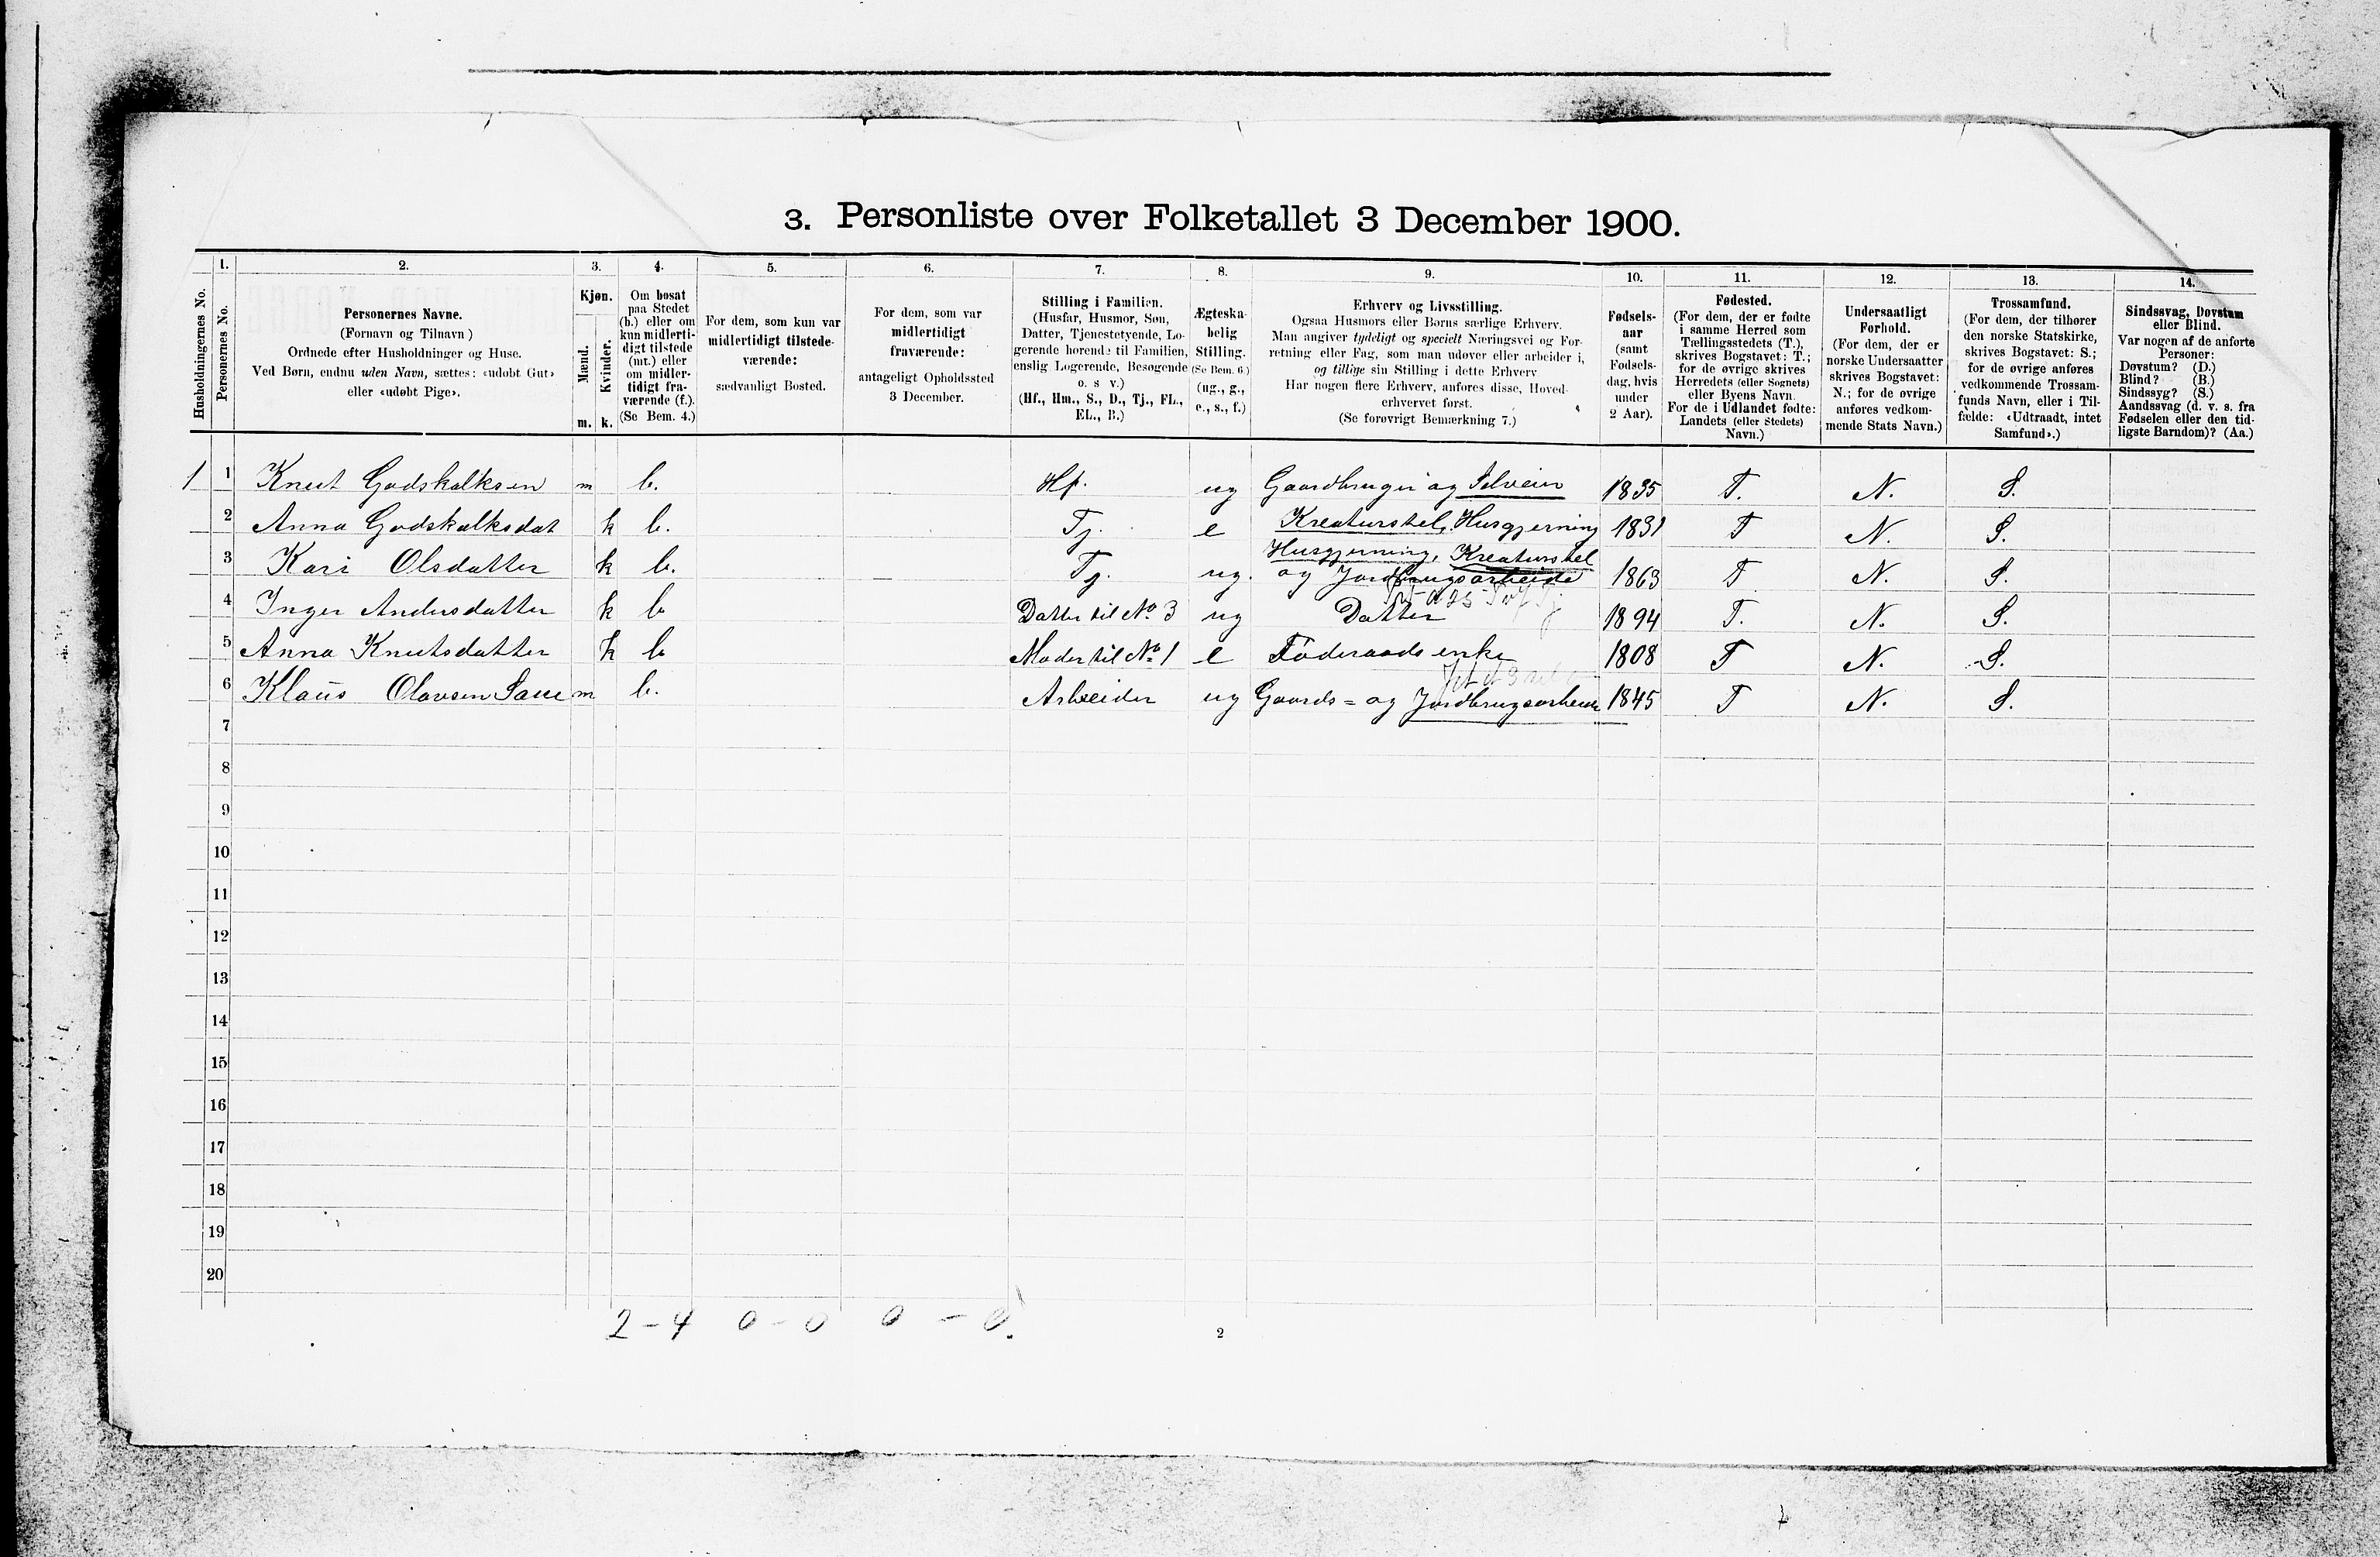 3. Personliste over Folketallet 3 December 1900.
Husholdningernes No.
1.
Personernes No.
2.
Personernes Navne.
(Fornavn og Tilnavn)
Ordnede efter Husholdninger og Huse.
Ved Børn, endnu uden Navn, sættes: «udøbt Gut»
eller «udøbt Pige».
3.
Kjøn.
Mænd.
Kvinder.
m.
k.
4.
Om bosat
paa Stedet
(b.) eller om
kun midlerti-
digt tilstede
(mt.) eller
om midler-
tidigt fra-
værende (f.).
(Se Bem. 4.)
5.
For dem, som kun var
midlertidigt tilstede-
værende:
sædvanligt Bosted.
6.
For dem, som var
midlertidigt
fraværende:
antageligt Opholdssted
3 December.
7.
Stilling i Familien.
(Husfar, Husmor, Søn,
Datter, Tjenestetyende, Lo-
gerende hørende til Familien,
enslig Logerende, Besøgende
o. s v.)
(Hf., Hm., S., D., Tj., FL.,
EL., B.)
8.
Ægteska-
belig
Stilling.
(Se Bem. 6.)
(ug., g.,
e., s., f.)
9.
Erhverv og Livsstilling.
Ogsaa Husmors eller Børns særlige Erhverv.
Man angiver tydeligt og specielt Næringsvei og For-
retning eller Fag, som man udøver eller arbeider i,
og tillige sin Stilling i dette Erhverv
Har nogen flere Erhverv, anføres disse, Hoved-
erhvervet først.
(Se forøvrigt Bemærkning 7.)
10.
Fødsels-
aar
(samt
Fødsels-
dag, hvis
under
2 Aar).
11.
Fødested.
(For dem, der er fødte
i samme Herred som
Tællingsstedets (T.),
skrives Bogstavet: T.;
for de øvrige skrives
Herredets (eller Sognets)
eller Byens Navn.
For de i Udlandet fødte:
Landets (eller Stedets)
Navn.)
12.
Undersaatligt
Forhold.
(For dem, der er
norske Undersaatter
skrives Bogstavet:
N.; for de øvrige
anføres vedkom-
mende Stats Navn.)
13.
Trossamfund.
(For dem, der tilhører
den norske Statskirke,
skrives Bogstavet: S.;
for de øvrige anføres
vedkommende Trossam-
funds Navn, eller i Til-
fælde: «Udtraadt, intet
Samfund».)
14.
Sindssvag, Døvstum
eller Blind.
Var nogen af de anførte
Personer:
Døvstum? (D.)
Blind? (B.)
Sindssyg? (S.)
Aandssvag (d. v. s. fra
Fødselen eller den tid-
ligste Barndom)? (Aa.)
1 1 Knut Godskalksen m b. Hf. ug Gaardbruger og Selveier 1835 T. N. S.
2 Anna Godskalksdat k b. Tj. e Kreaturstel, Husgjerning 1831 T N. S.
3 Kari Olsdatter k b. Tj. ug. Husgjerning, Kreaturstel
og Jordbrugsarbeide 1863 T N. S.
4 Inger Andersdatter k b Datter til No 3 ug Datter 1894 T. N. S.
5 Anna Knutsdatter k b Moder til No 1 e Føderaadsenke 1808 T N. S.
6 Klaus Olavsen m b. Arbeider ug Gaards= og 1845 T N. S.
7
8
9
10
11
12
13
14
15
16
17
18
19
20
2 - 4 0 - 0 0 - 0.
2